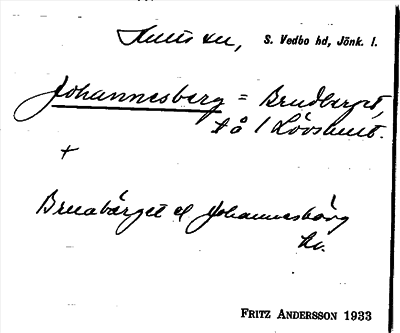 S. Vedbo hd, Jönk. l.
Johannesberg = Brudberget,
på 1 Lövhult.
+
Brudbärget el Johannesbärg
hv.
FRITZ ANDERSSON 1933